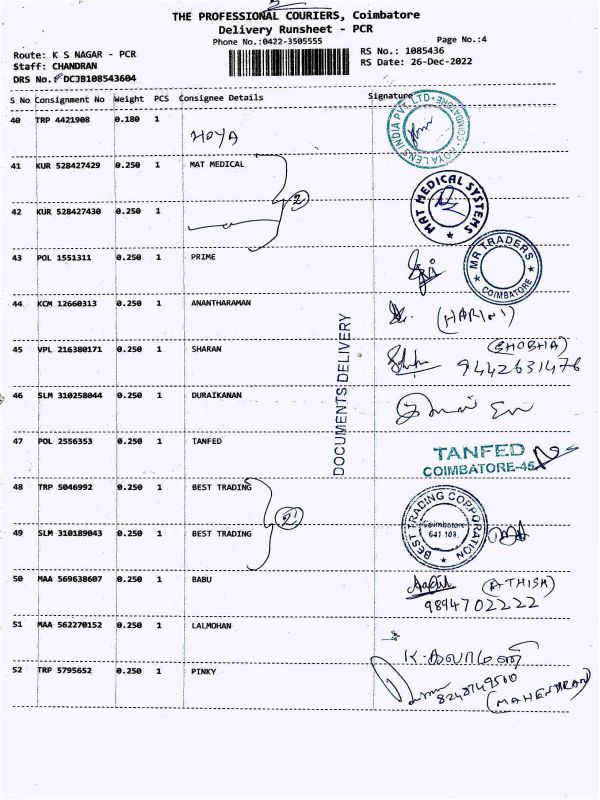 THE PROFESSIONAL COURIERS, Coimbatore
Delivery Runsheet - PCR
Phone No.:0422-3505555
Page No.:4
Route: K S NAGAR - PCR
RS No.: 1085436
Staff: CHANDRAN
RS Date: 26-Dec-2022
DRS No.: DCJB108543604
S No Consignment No Weight PCS Consignee Details Signature
40 TRP 4421908 0.180 1
HOYA
HOYA LENS INDIA PVT. LTD. COIMBATORE
41 KUR 528427429 0.250 1 MAT MEDICAL
2
MAT MEDICAL SYSTEMS
42 KUR 528427430 0.250 1
43 POL 1551311 0.250 1 PRIME
MR TRADERS COIMBATORE
44 KCM 12660313 0.250 1 ANANTHARAMAN
(HARINI)
45 VPL 216380171 0.250 1 SHARAN
(SHOBHA)
9442631476
DOCUMENTS DELIVERY
46 SLM 310258044 0.250 1 DURAIKANAN
47 POL 2556353 0.250 1 TANFED
TANFED
COIMBATORE-45
48 TRP 5046992 0.250 1 BEST TRADING
2
BEST TRADING CORPORATION
Coimbatore
641 103.
49 SLM 310189043 0.250 1 BEST TRADING
50 MAA 569638607 0.250 1 BABU
(ATHISH)
9894702222
51 MAA 562270152 0.250 1 LALMOHAN
52 TRP 5795652 0.250 1 PINKY
8248749500
(MAHENDRAN)